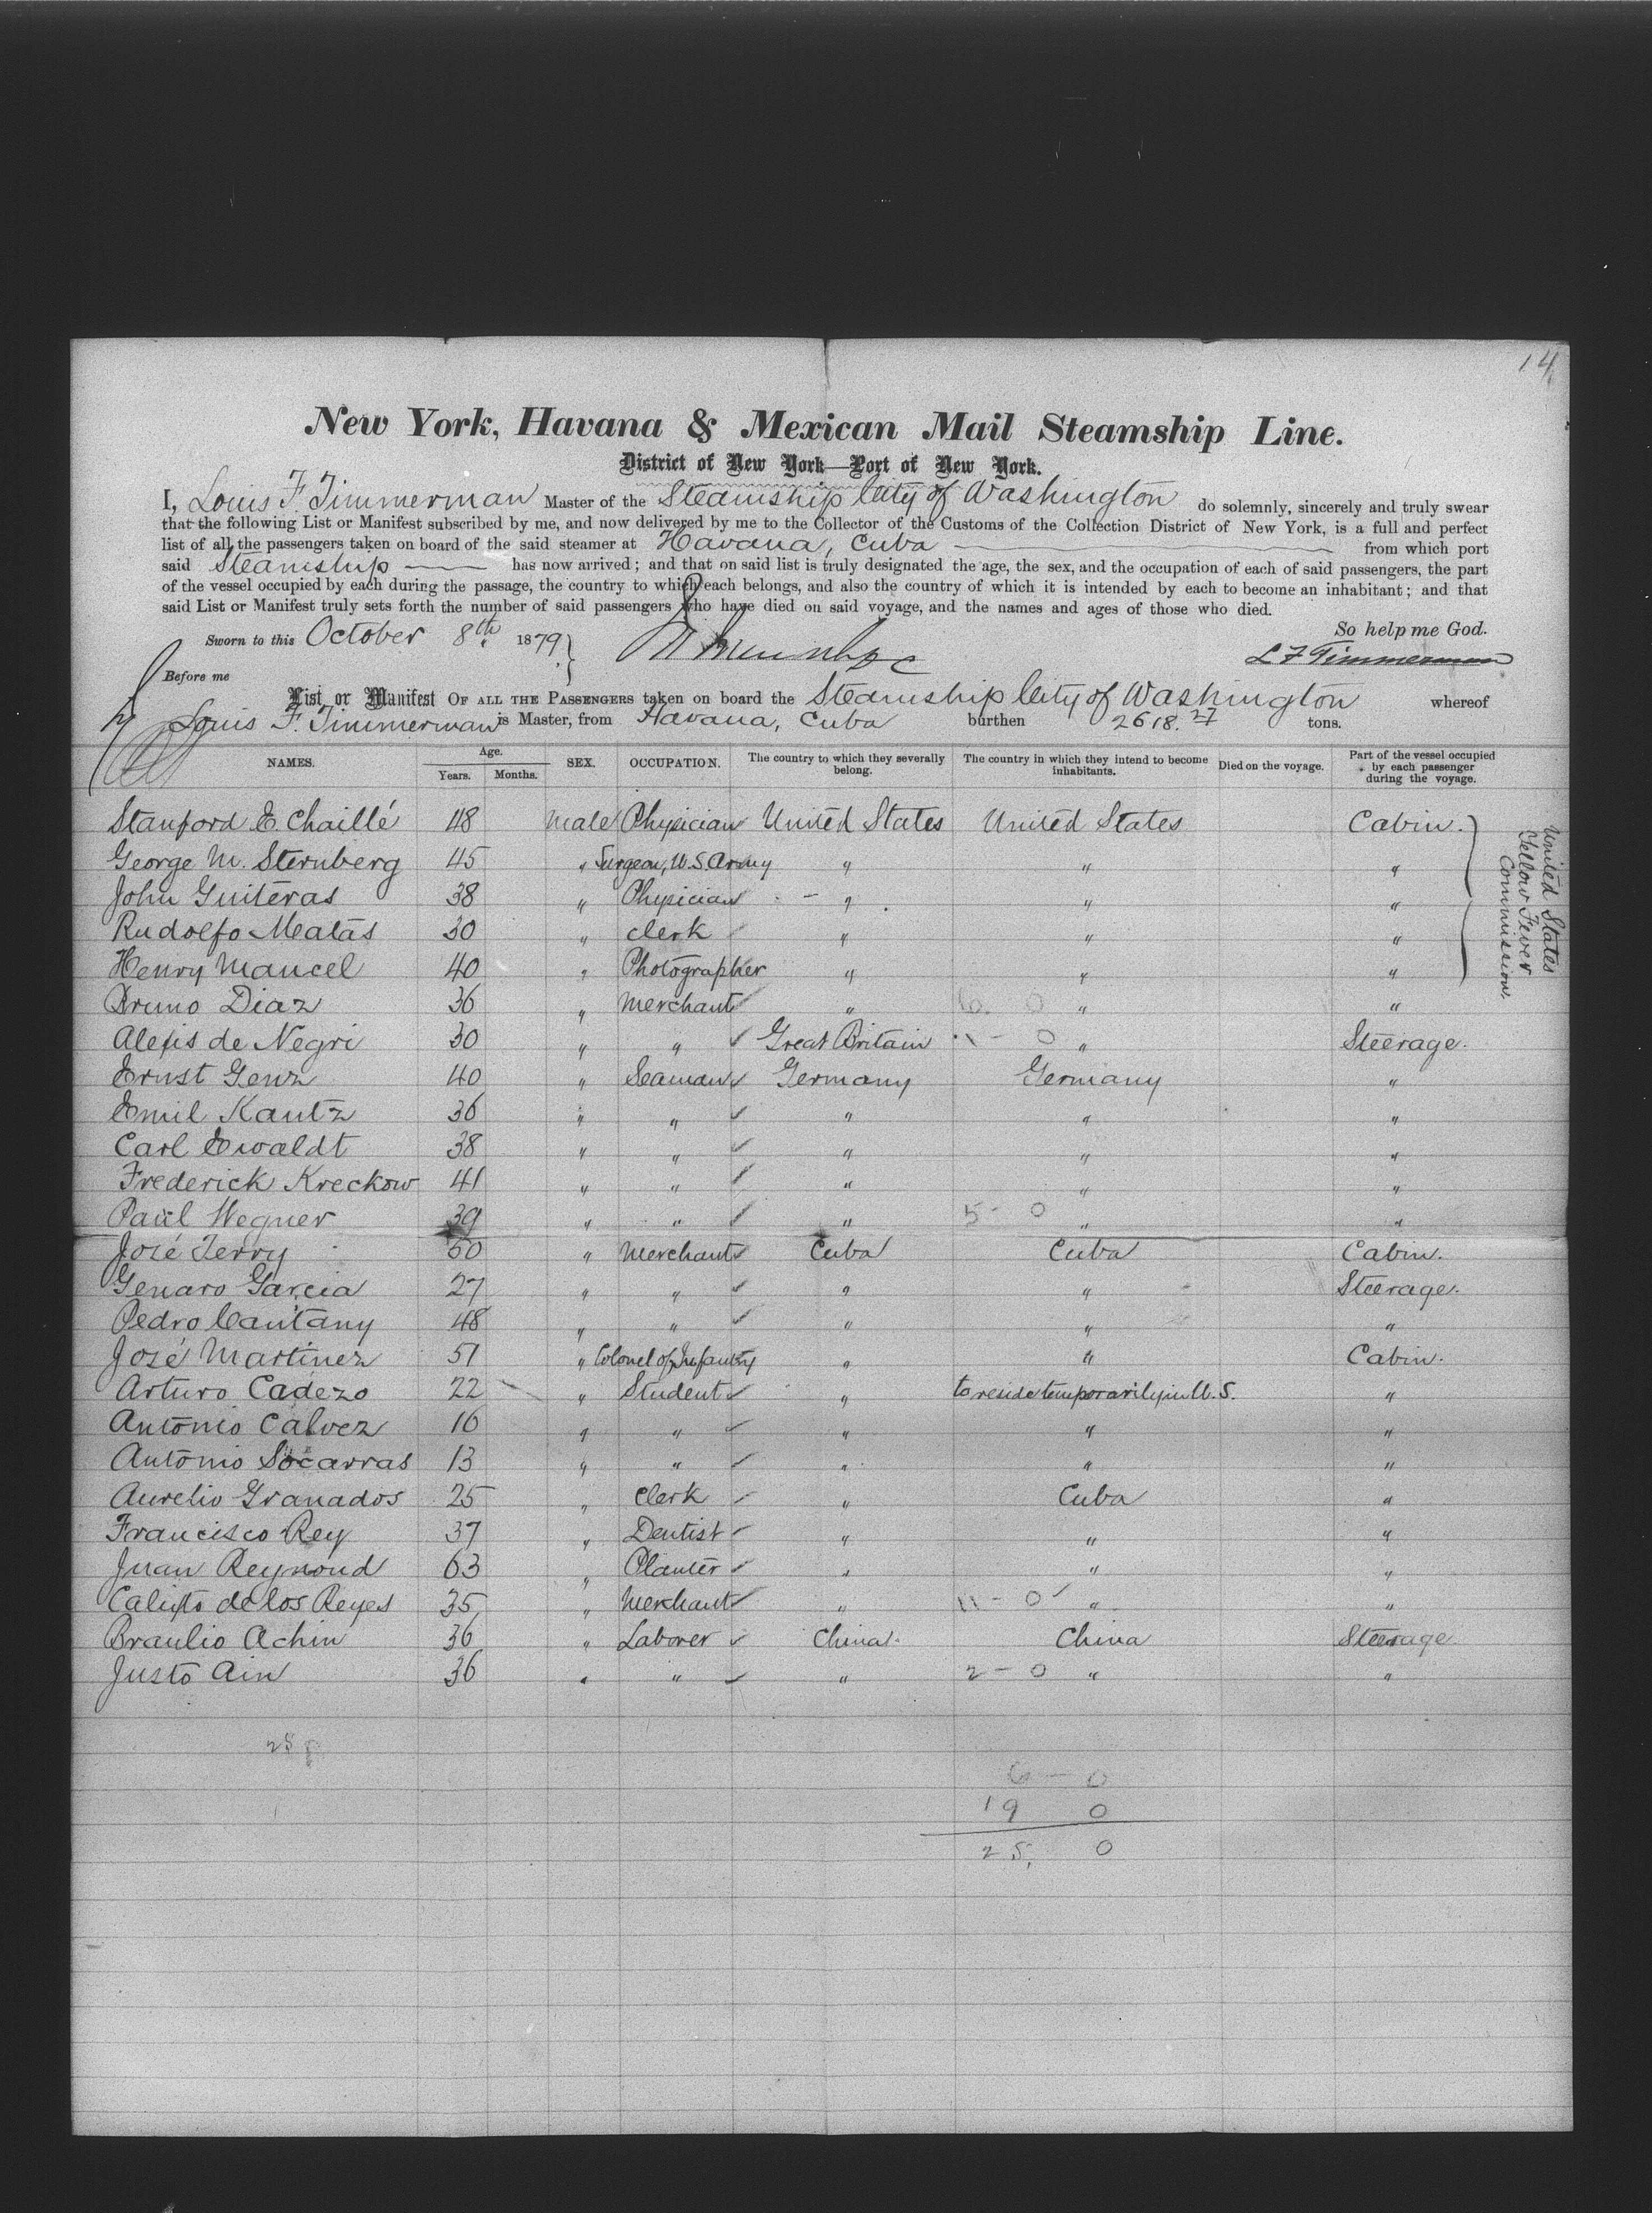 14
New York, Havana & Mexican Mail Steamship Line.
District of New York—Port of New York.
I, Louis F. Timmerman Master of the Steamship City of Washington do solemnly, sincerely and truly swear
that the following List or Manifest subscribed by me, and now delivered by me to the Collector of the Customs of the Collection District of New York, is a full and perfect
list of all the passengers taken on board of the said steamer at Havana, Cuba from which port
said Steamship has now arrived; and that on said list is truly designated the age, the sex, and the occupation of each of said passengers, the part
of the vessel occupied by each during the passage, the country to which each belongs, and also the country of which it is intended by each to become an inhabitant; and that
said List or Manifest truly sets forth the number of said passengers who have died on said voyage, and the names and ages of those who died.
So help me God.
Sworn to this October 8th 1879
L F Timmerman
Before me
List or Manifest OF ALL THE PASSENGERS taken on board the Steamship City of Washington whereof
Louis F. Timmerman is Master, from Havana, Cuba burthen 2618.27 tons.
NAMES. Age. Years. Months. SEX. OCCUPATION. The country to which they severally belong. The country in which they intend to become inhabitants. Died on the voyage. Part of the vessel occupied by each passenger during the voyage.
Stanford E. Chaillé 48 Male Physician United States United States Cabin.
George M. Sternberg 45 " Surgeon, U.S. Army " " "
John Guitéras 38 " Physician " " "
Rudolfo Matas 30 " Clerk " " "
Henry Mancel 40 " Photographer " " "
United States Yellow Fever Commission.
Bruno Diaz 36 " Merchant " 6. 0 " "
Alexis de Negri 30 " " Great Britain 1 - 0 " Steerage.
Ernst Genz 40 " Seaman Germany Germany "
Emil Kautz 36 " " " " "
Carl Ewaldt 38 " " " " "
Frederick Kreckow 41 " " " " "
Paul Wegner 39 " " " 5 - 0 " "
José Terry 50 " Merchant Cuba Cuba Cabin.
Genaro Garcia 27 " " " " Steerage.
Pedro Cantany 48 " " " " "
José Martinez 51 " Colonel of Infantry " " Cabin.
Arturo Cadezo 22 " Student " to reside temporarily in U.S. "
Antonio Calvez 16 " " " " "
Antonio Socarras 13 " " " " "
Aurelio Granados 25 " Clerk " Cuba "
Francisco Rey 37 " Dentist " " "
Juan Reymond 63 " Planter " " "
Calixto de los Reyes 35 " Merchant " 11 - 0 " "
Braulio Achin 36 " Laborer China China Steerage
Justo Ain 36 " " " 2 - 0 " "
25
6 - 0
19 0
25, 0